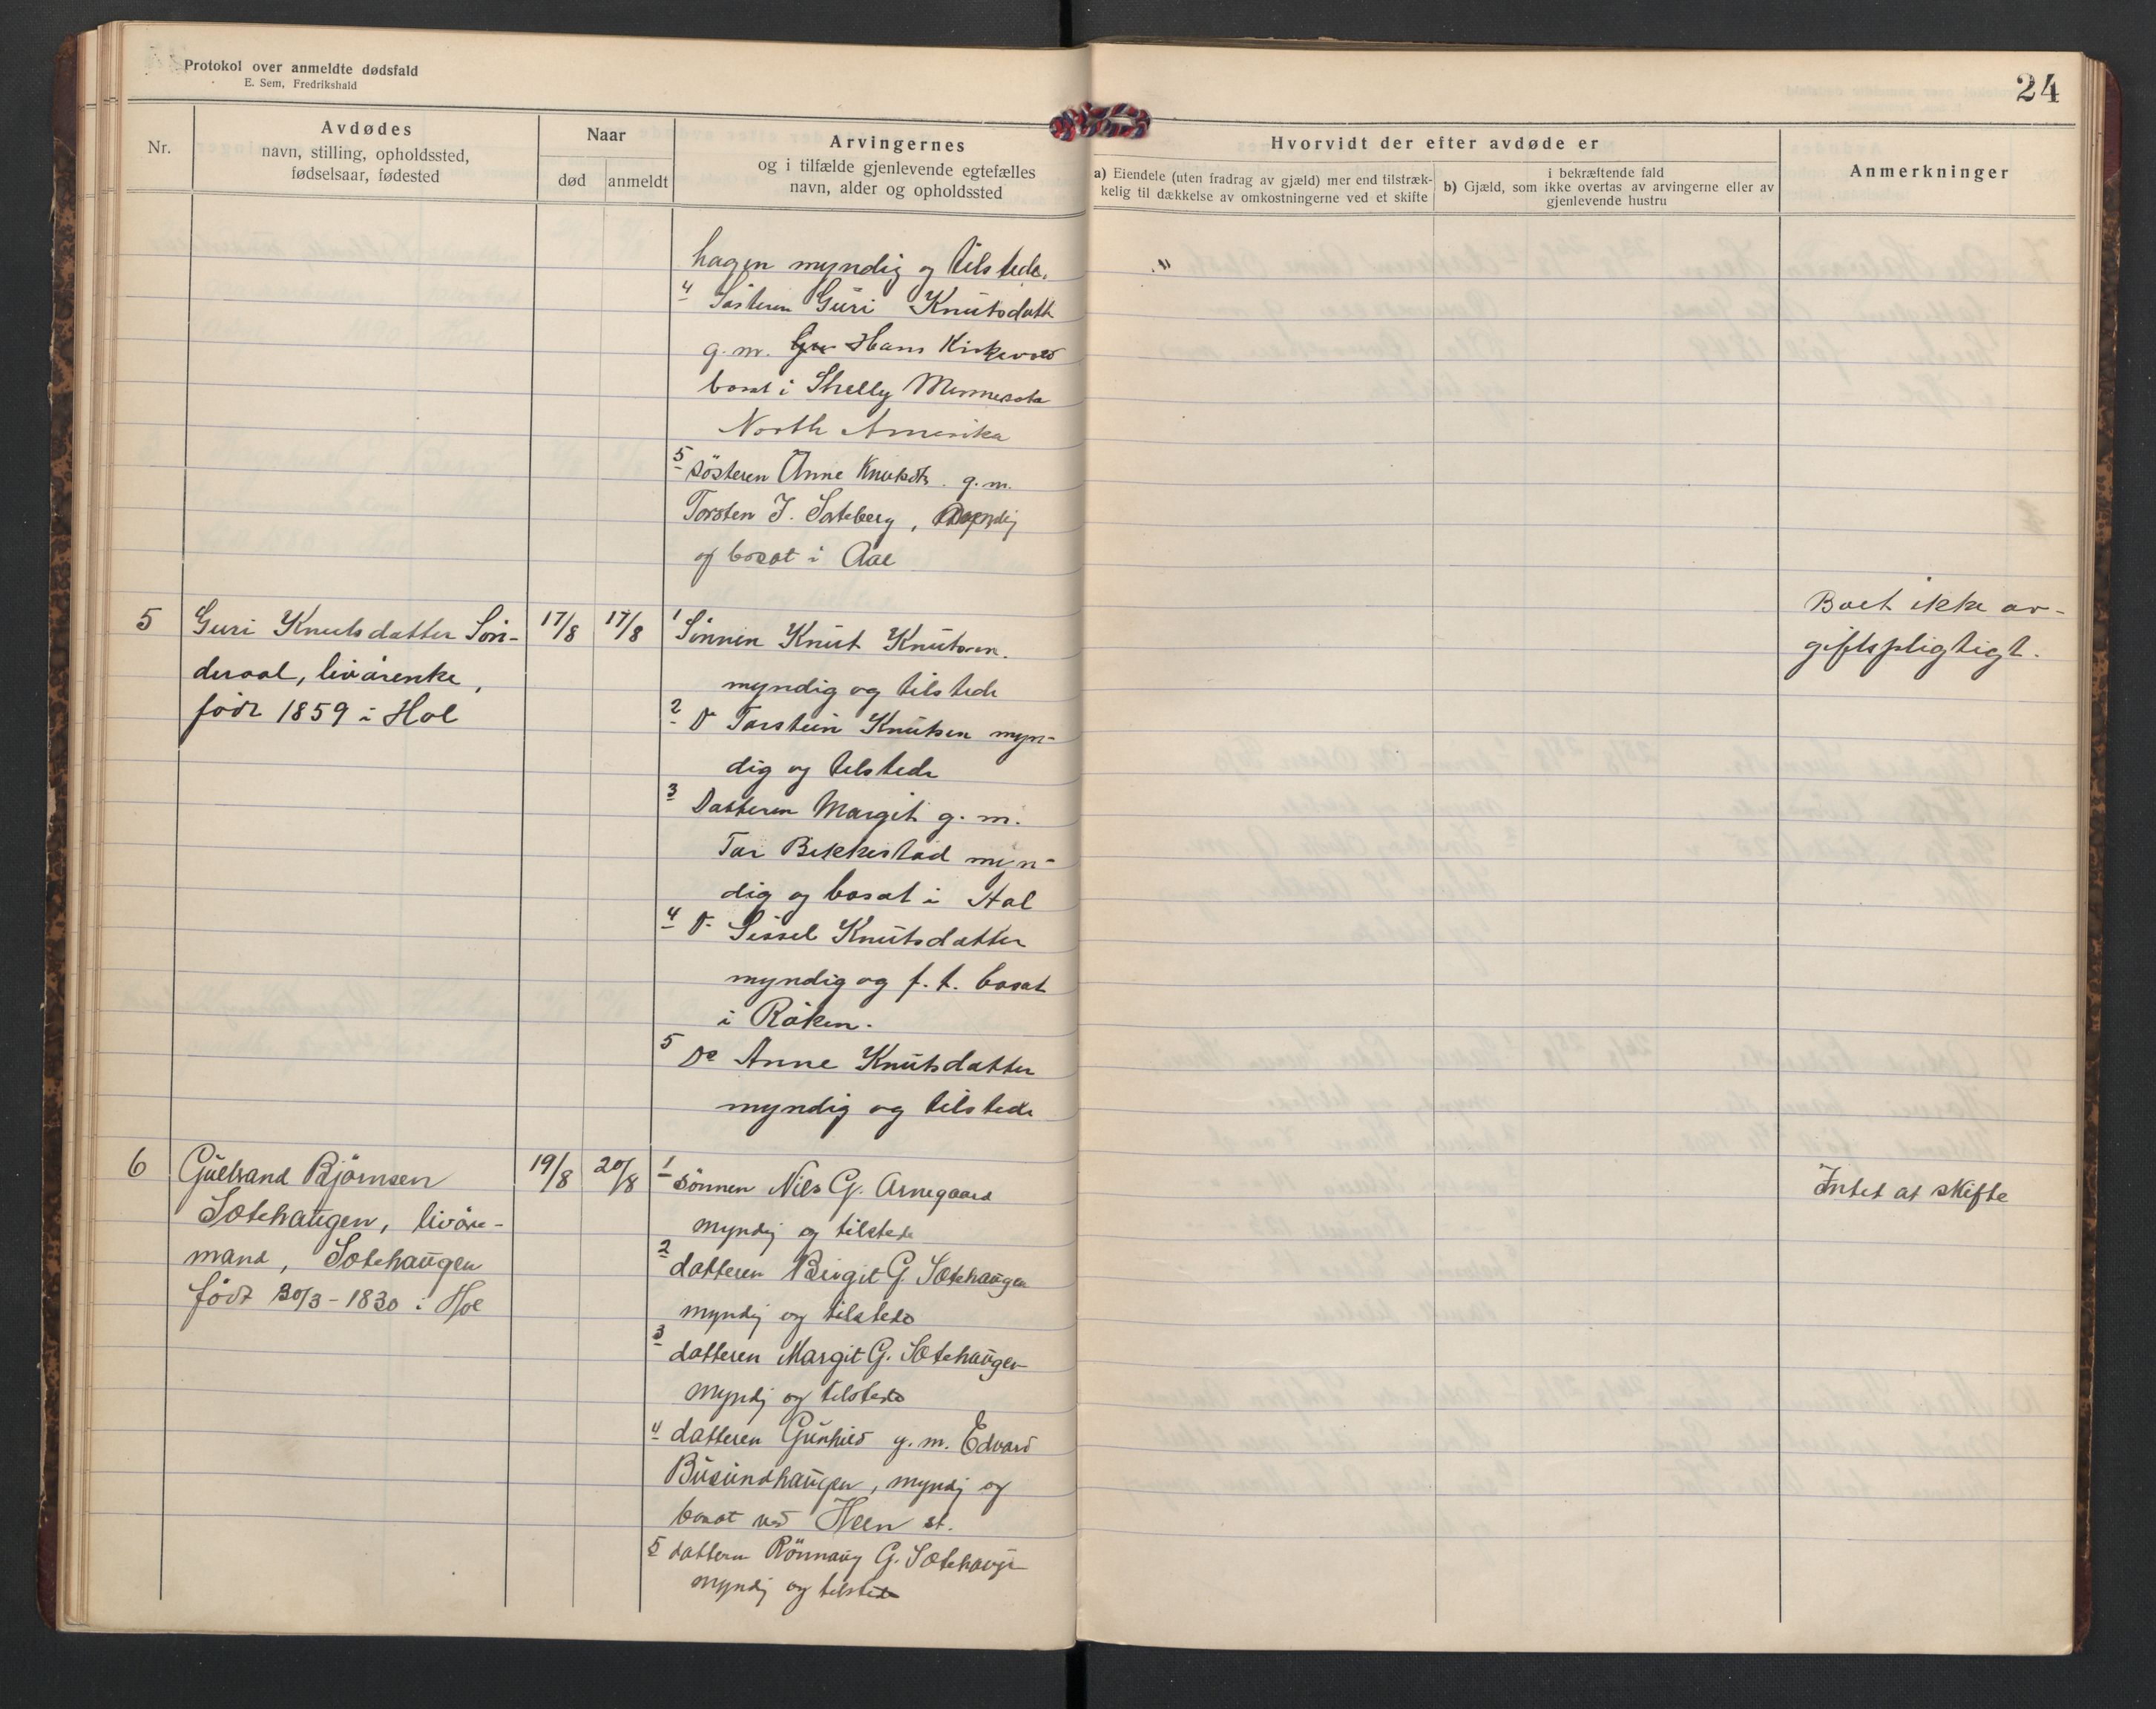 Protokol over anmeldte dødsfald
E. Sem, Fredrikshald
24
Nr.
Avdødes
navn, stilling, opholdssted,
fødselsaar, fødested
Naar
død
anmeldt
Arvingernes
og i tilfælde gjenlevende egtefælles
navn, alder og opholdssted
Hvorvidt der efter avdøde er
a) Eiendele (uten fradrag av gjæld) mer end tilstræk-
kelig til dækkelse av omkostningerne ved et skifte
i bekræftende fald
b) Gjæld, som ikke overtas av arvingerne eller av
gjenlevende hustru
Anmerkninger
hagen myndig og tilstede.
4 Søsteren Guri Knutsdatt
g. m. Hans Kirkevold
bosat i Shelly Minnesota
North Amerika
5 søsteren Anne Knutsdtr. g. m.
Torsten J. Sateberg, myndig
og bosat i Aal
5 Guri Knutsdatter Sön- 17/8 17/8 1 Sönnen Knut Knutsen.
deraal, livörenke,
född 1859 i Hol
myndig og tilstede
2 Do Torstein Knutsen myn-
dig og tilstede
3 Datteren Margit g. m.
Tor Bekkestad myn-
dig og bosat i Hol
4 Do Sissel Knutsdatter
myndig og f. t. bosat
i Röken.
5 Do Anne Knutsdatter
myndig og tilstede
Boet ikke av-
giftspligtigt.
6 Gulbrand Björnsen 19/8 20/8 1 sönnen Nils G. Arnegaard
Sotehaugen, livöre-
mand, Sotehaugen
född 30/3-1830 i Hol
myndig og tilstede
2 datteren Birgit G. Sotehaugen
myndig og tilstede
3 datteren Margit G. Sotehaugen
myndig og tilstede
4 datteren Gunhild g. m. Edvard
Busundhaugen, myndig og
bosat ved Heen st.
5 datteren Rönnaug G. Sotehaugen
myndig og tilstede
Intet at skifte